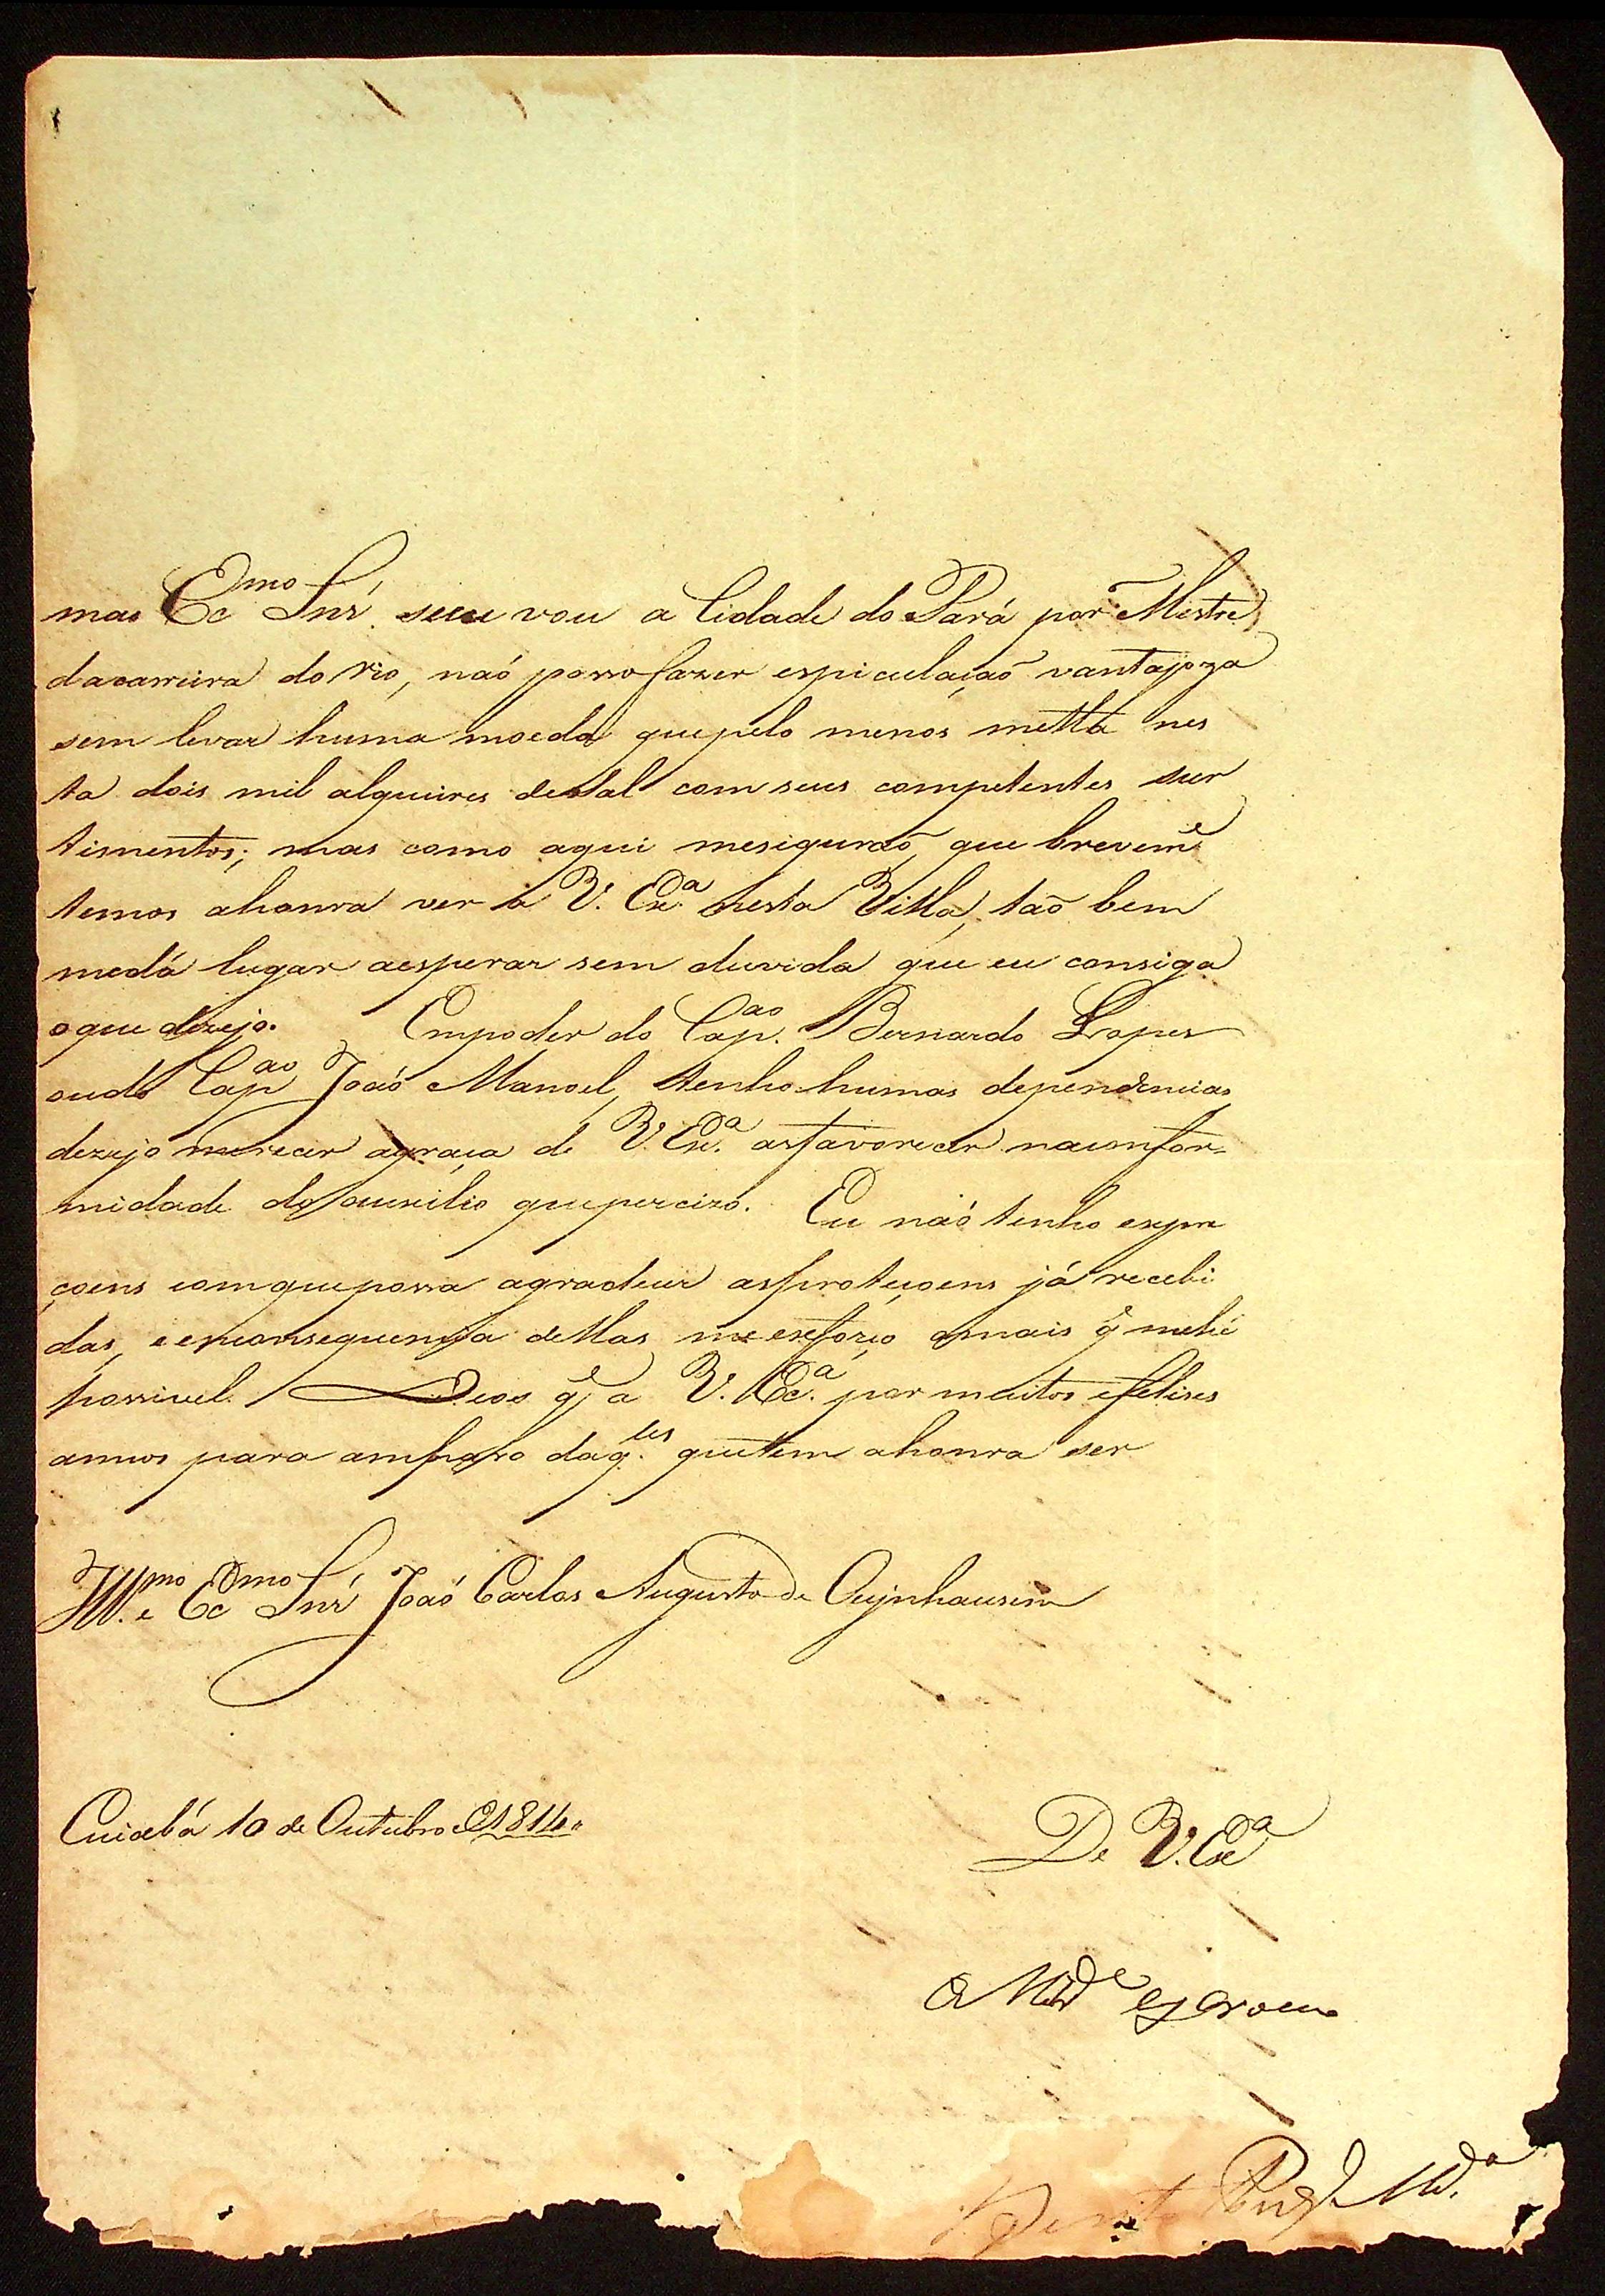 mas Ec.mo Snr̃. seeu vou a Cidade do Pará por Mestre
dacarreira do rio, naõ possofazer espiculaçaõ vantajoza
sem levar huma moeda quepelo menos metta nes
ta dois mil alqueires desal comseus competentes sur
timentos; mas como aqui mesiguraõ, que brevem.e
temos ahonra ver a V. Ex.a nesta Villa, taõ bem
medá lugar aesperar sem duvida que eu consiga
oque dezejo. Empoder do Cap.ao Bernardo Lopes
oudo Cap.ao Joaõ Manoel, tenho humas dependencias,
dezejo merecer agraça de V. Ex.a asfavorecer naconfor-
midade do auxilio quepercizo. Eu naõ tenho expre
çoens comquepossa agradecer asproteçoens já recebi
das, e emconsequencia dellas me esforço omais q̃ mehé
possivel. Deos g.e a V. Ex.a por muitos efelises
annos para amparo daq.les quetem ahonra ser
Ill.mo e Ec.mo Snr̃ Joaõ Carlos Augusto de Oeynhausem
Cuiabá 10 de Outubro 1814
De V. Ex.a